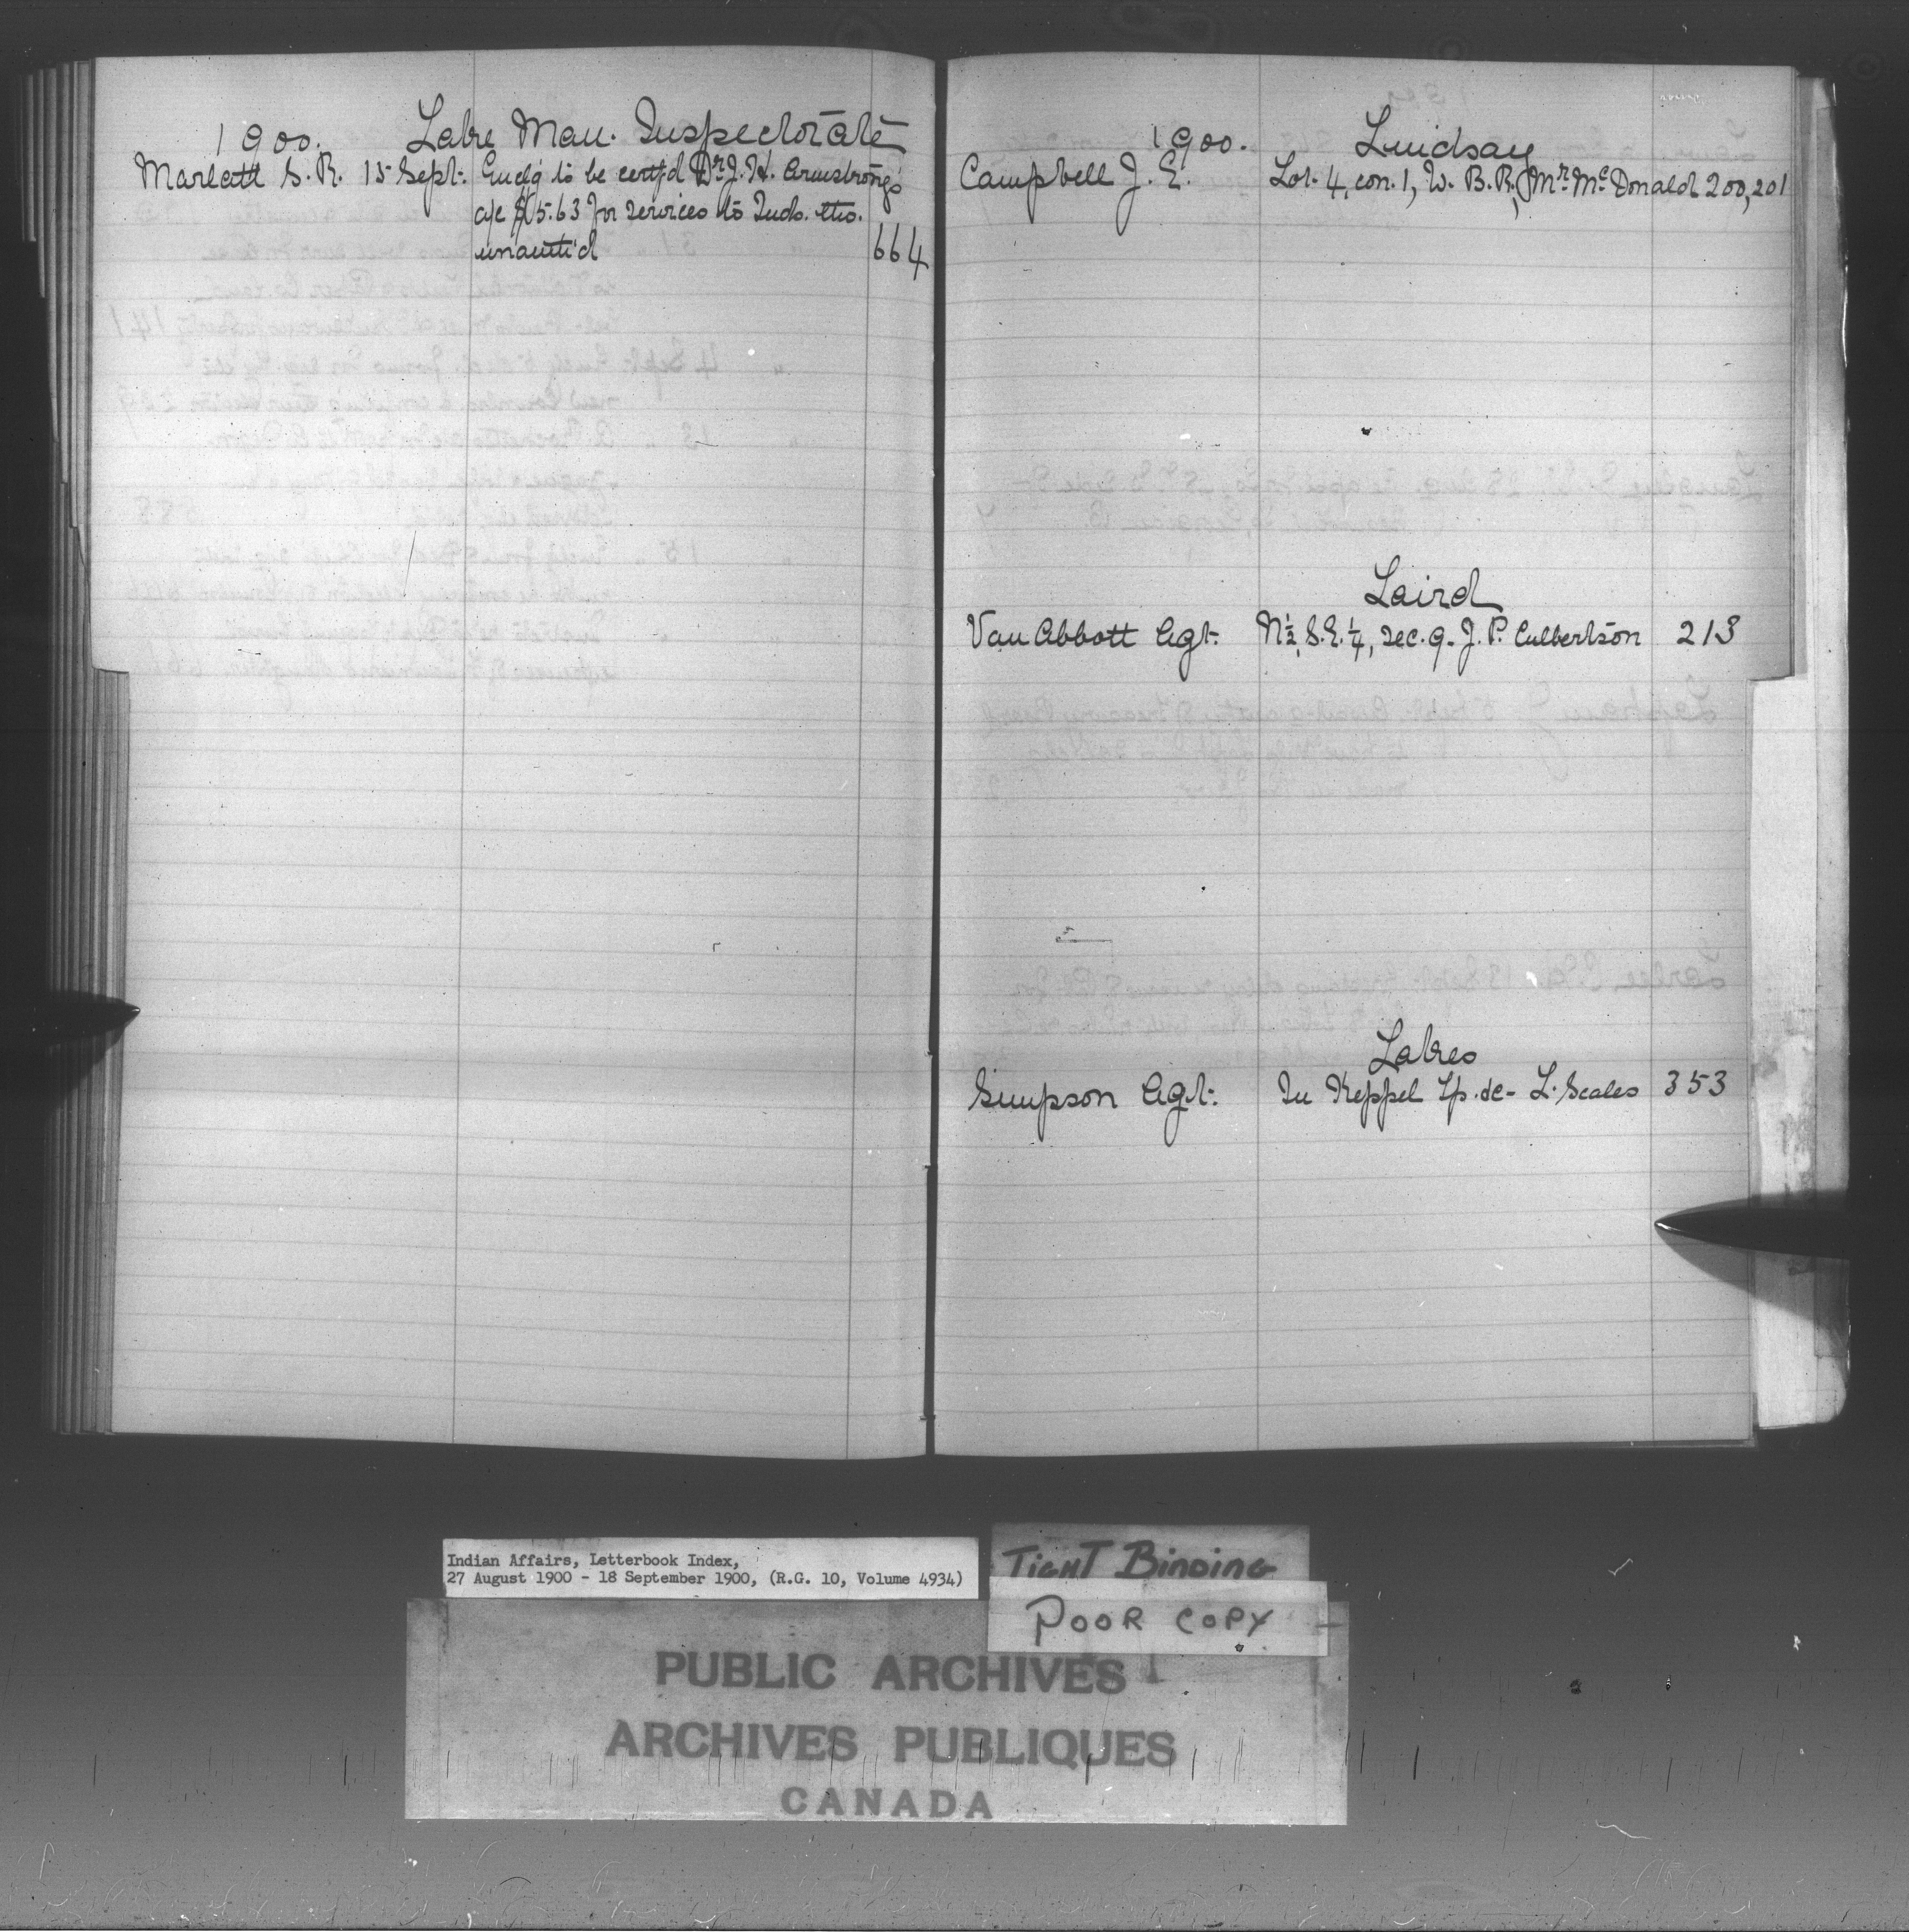 1900. Lake Man. Inspectorate
Marlatt S. R. 15 Sept. Encl'g to be certf'd Dr. J. H. Armstrong's
a/c for services to Inds. tho.
unauth'd 664
1900. Lindsay
Campbell J. E. Lot. 4, con. 1, W. B. R., Mr. McDonald 200, 201
Laird
Van Abbott Agt. N½, S.E. ¼, sec. 9 - J. P. Culbertson 213
Lakes
Simpson Agt. In Keppel Tp. &c - L. Scales 353
Indian Affairs, Letterbook Index,
27 August 1900 - 18 September 1900, (R.G. 10, Volume 4934)
TIGHT BINDING
POOR COPY
PUBLIC ARCHIVES
ARCHIVES PUBLIQUES
CANADA